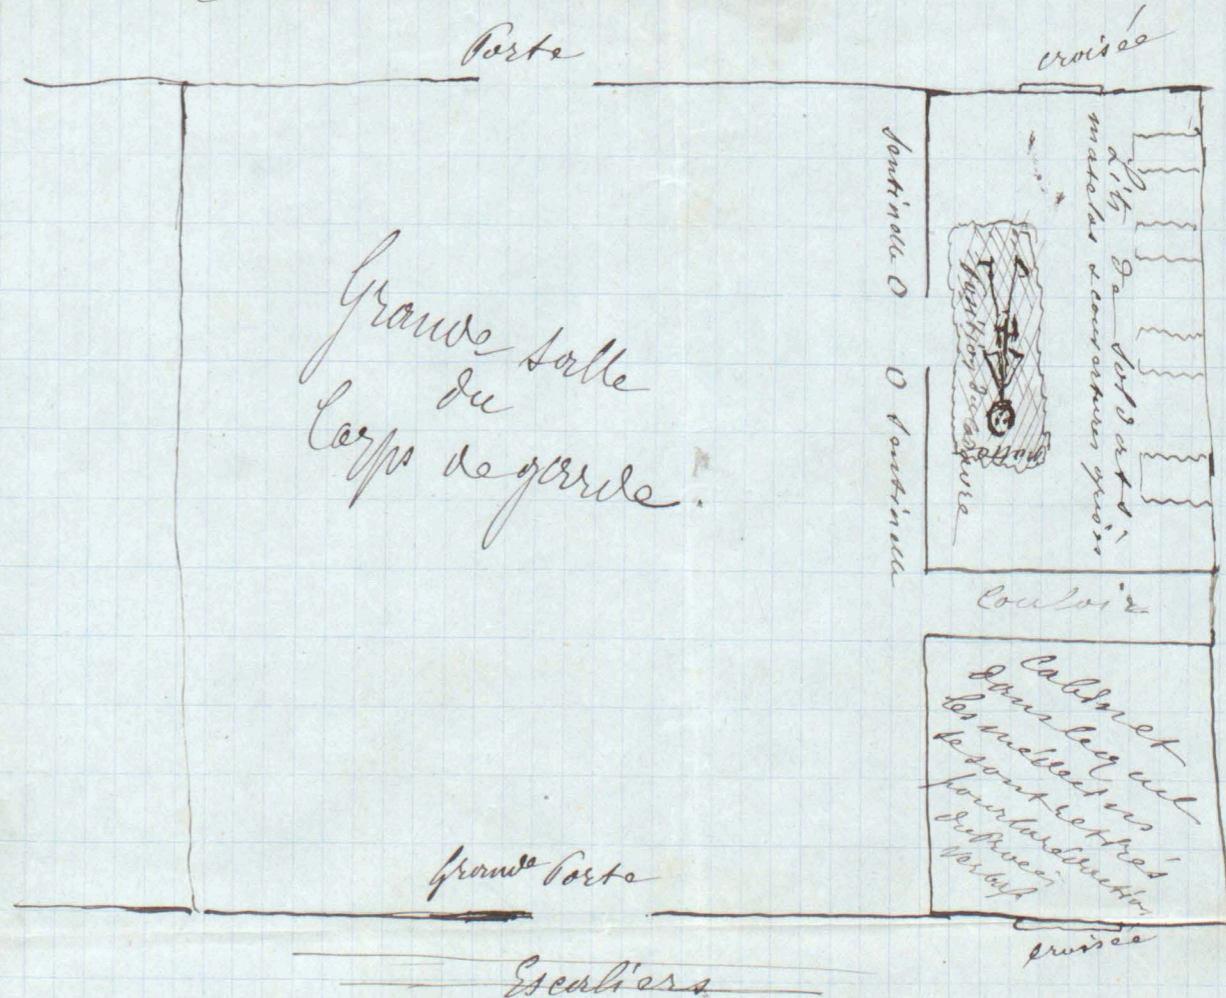 Porte
croisée
Grande salle
du
Corps de garde.
Sentinelle O
O Sentinelle
Lits de soldats
matelas & couvertures grises
Position du cadavre
Couloir
Cabinet
dans lequel
les médecins
se sont retirés
pour la rédaction
du Procès
Verbal
Grande Porte
croisée
Escaliers